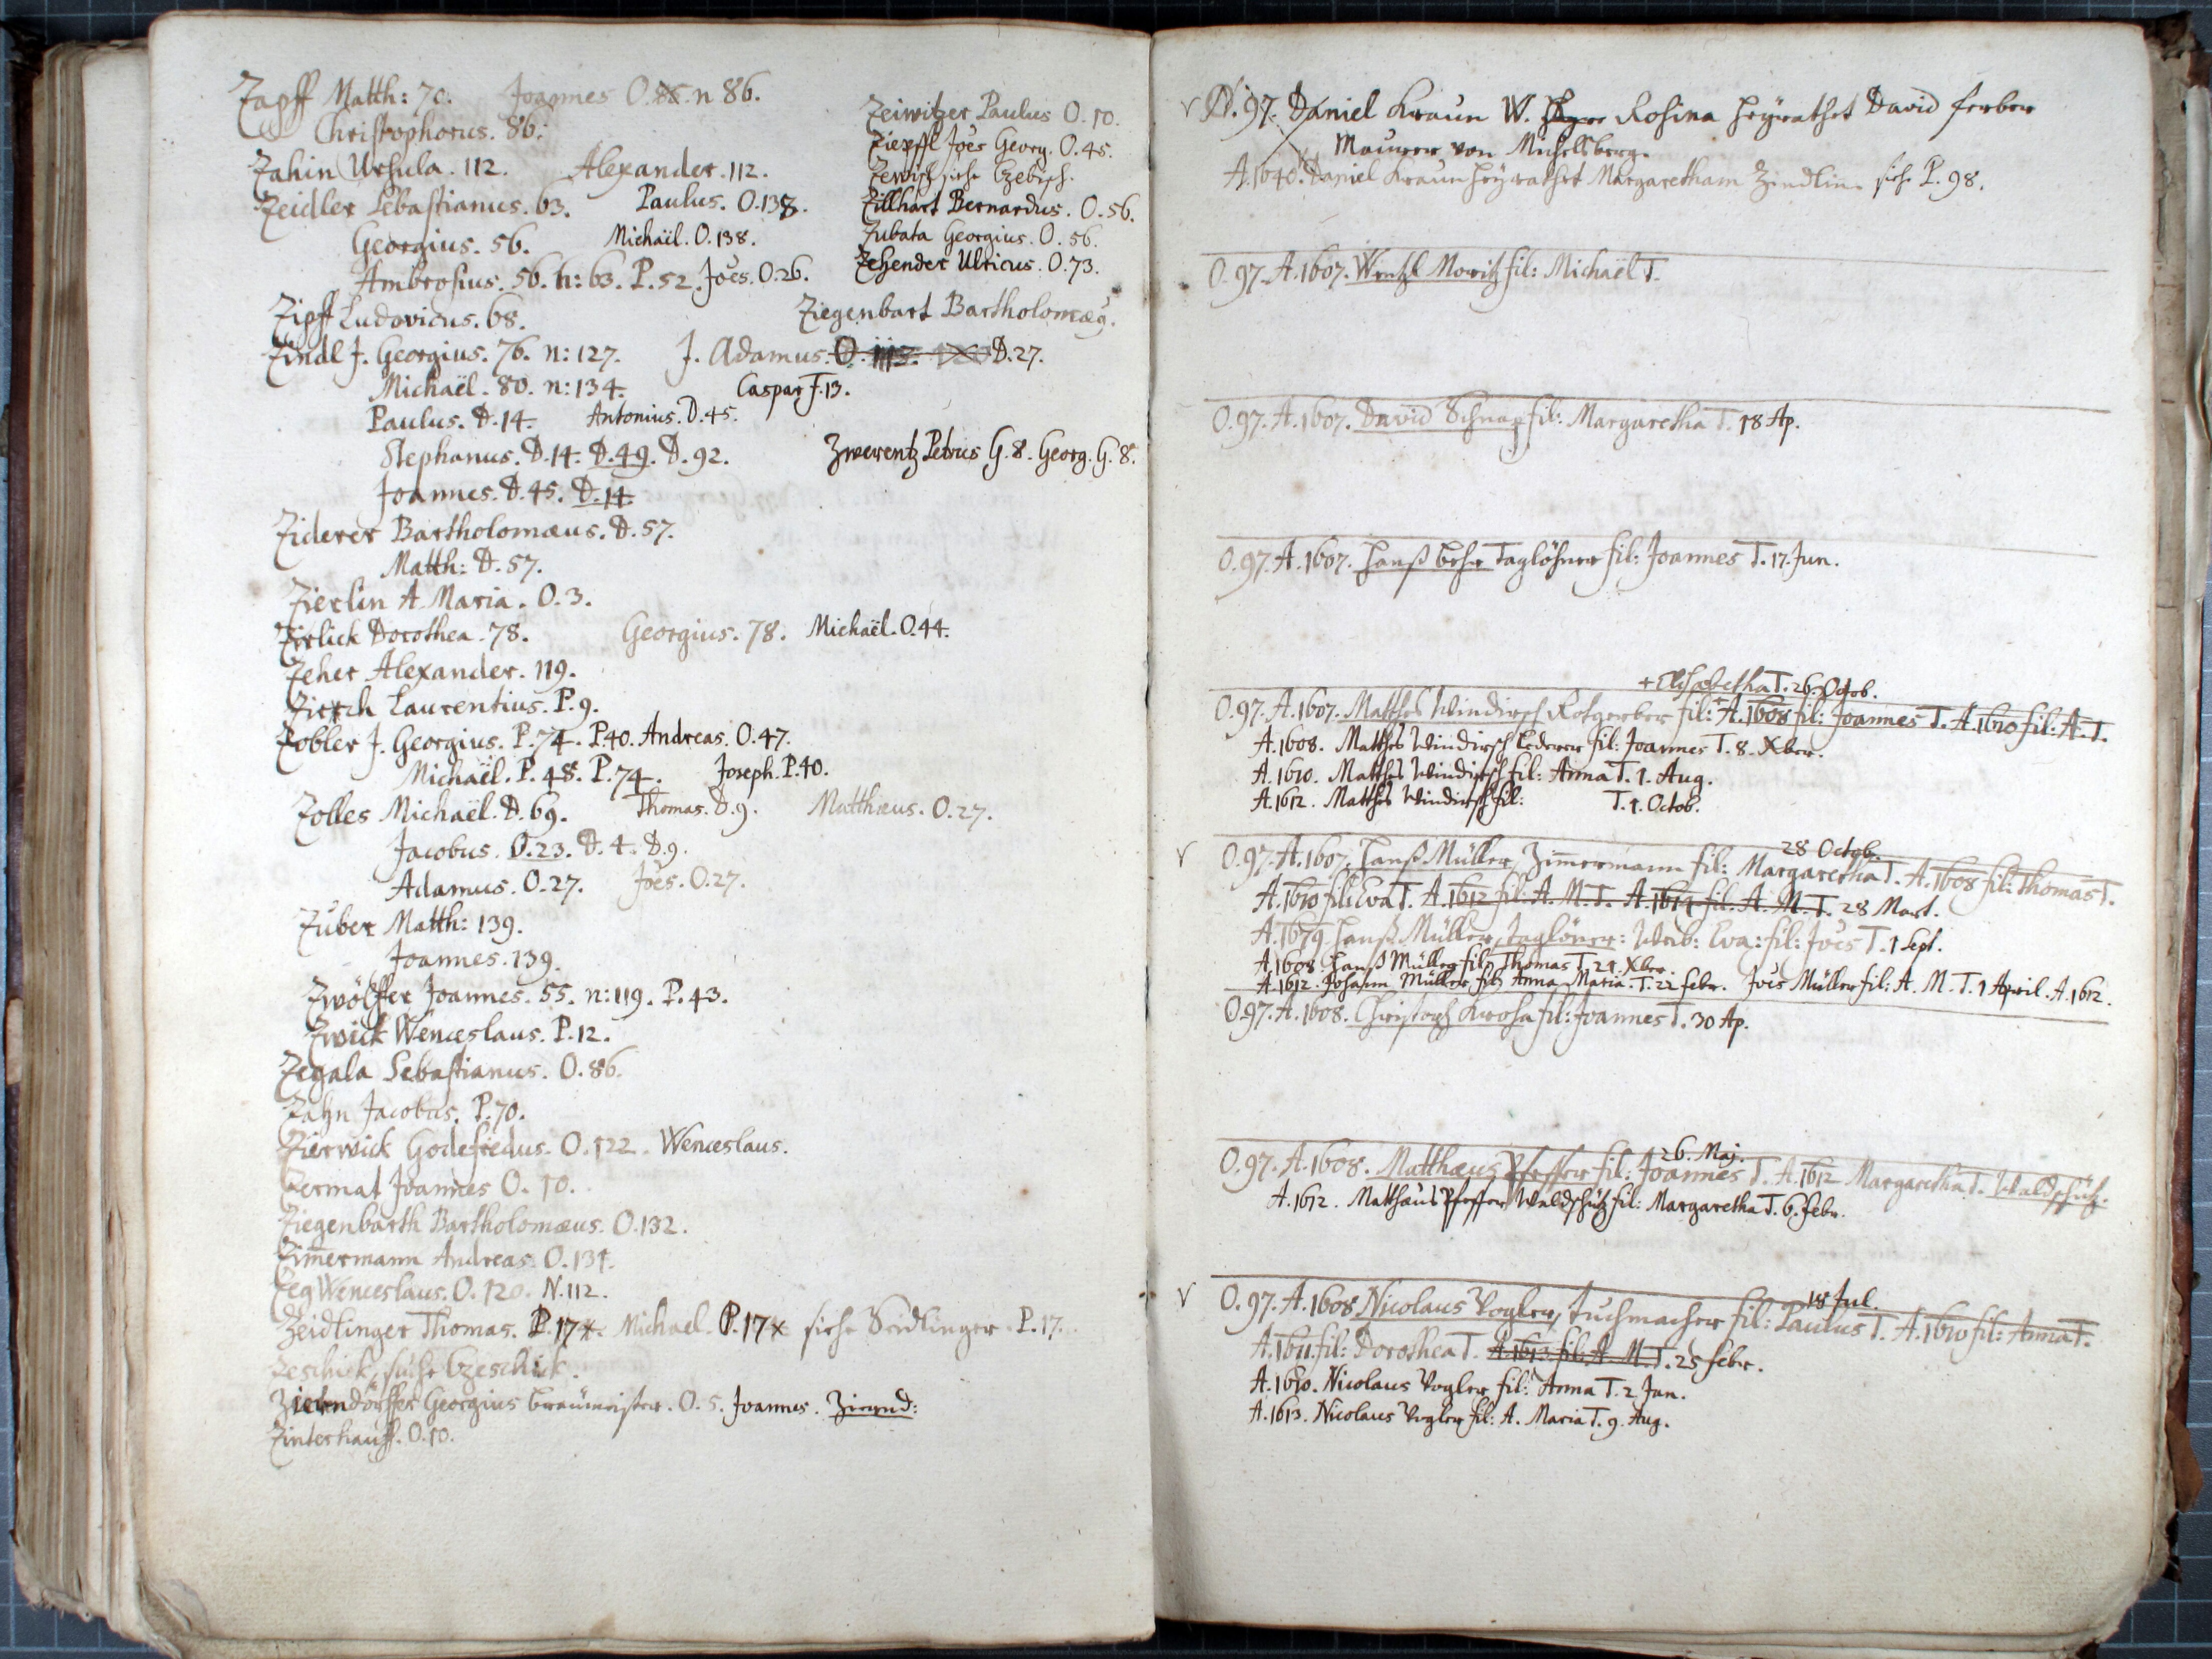 Zapff Matth: 70. Joannes O. n 86.
Christophorus. 86.
Zahin Ursula. 112. Alexander. 112.
Zeidler Sebastianus. 63. Paulus. O.138.
Georgius. 56. Michaël. O.138.
Ambrosius. 56. n: 63. P. 52. Joës. O.26.
Zeiwitzer Paulus O. 10.
Ziepffl Joës Georg. O.45.
Zewisch siehe Czebisch.
Zillhart Bernardus. O.56.
Zubata Georgius. O. 56.
Zehender Ulricus. O.73.
Zipff Ludovicus. 68. Ziegenbart Bartholomæus.
Zindl J. Georgius. 76. n: 127. J. Adamus. O. 113. D.27.
Michaël. 80. n: 134. Caspar J.13.
Paulus. D.14. Antonius. D.45.
Stephanus. D.14. D.49. D.92. Zwerentz Petrus G.8. Georg. G.8.
Joannes. D.45. D.14.
Ziderer Bartholomæus. D.57.
Matth: D.57.
Zierlin A. Maria. O.3.
Zirlick Dorothea. 78. Georgius. 78. Michaël. O.44.
Zeher Alexander. 119.
Laurentius. P.9.
Zobler J. Georgius. P.74. P.40. Andreas. O.47.
Michaël. P.48. P.74. Joseph. P.40.
Zolles Michaël. D.69. Thomas. D.9. Matthæus. O.27.
Jacobus. O.23. D.4. D.9.
Adamus. O.27. Joës. O.27.
Zuber Matth: 139.
Joannes. 139.
Zwölffer Joannes. 55. n: 119. P.43.
Zwick Wenceslaus. P.12.
Zegala Sebastianus. O.86.
Zahn Jacobus. P.70.
Zierwick Godefredus. O.122. Wenceslaus.
Zermat Joannes O. 10.
Ziegenbarth Bartholomæus. O.132.
Zim̄ermann Andreas. O.131.
Zeg Wenceslaus. O.120. N.112.
Zeidlinger Thomas. P.17. Michael. P.17 siehe Seidlinger. P.17.
Zeschick, siehe Czeschick.
Georgius Breumeister. O.5. Joannes.
Zinterhauff. O.10.
N.97. Daniel Kraun W. Rosina heyrathet David ferber
Maurer von Michelsberg.
A.1640. Daniel Kraun heyrathet Margaretham Zindlin. siehe P.98.
O.97. A.1607. Wentzl Moritz fil: Michaël T.
O.97. A.1607. David Schnap fil: Margaretha T. 18 Ap.
O.97. A.1607. Hanß Behr Taglöhner fil: Joannes T. 17. Jun.
+ Elisabetha T. 26. Octob.
O.97. A.1607. Matthes Windirsch Rotgerber fil: + A.1608 fil: Joannes T. A.1610 fil: A. T.
A.1608. Matthes Windirsch Lederer fil: Joannes T. 8. Xber.
A.1610. Matthes Windirsch fil: Anna T. 1. Aug.
A.1612. Matthes Windirsch fil: T. 1. Octob.
28 Octob.
O.97. A.1607. Hanß Müller, Zim̄ermann fil: Margaretha T. A.1608 fil: Thomas T.
A.1610 fil: Eva T. A.1612 fil: A. M. T. A.1614 fil: A. M. T. 28 Mart.
A.1679. Hanß Müller, Taglöner: Weib: Eva: fil: Joës T. 1 Sept.
A.1608. Hanß Müller fil: Thomas T. 21. Xber.
A.1612. Johann Müller fil: Anna Maria. T. 22 febr. Joës Müller fil: A. M. T. 1 April. A.1612.
O.97. A.1608. Christoph Krosa fil: Joannes T. 30 Ap.
26. Maj.
O.97. A.1608. Matthæus Pfeffer fil: Joannes T. A.1612 Margaretha T. Waldschütz.
A.1612. Matthäus Pfeffer Waldschütz fil: Margaretha T. 6. Febr.
18 Jul.
O.97. A.1608 Nicolaus Vogler, Tuchmacher fil: Paulus T. A.1610 fil: Anna T.
A.1611. fil: Dorothea T. A.1613 fil: A. M. T. 25 febr.
A.1610. Nicolaus Vogler fil: Anna T. 2 Jan.
A.1613. Nicolaus Vogler fil: A. Maria T. 9. Aug.